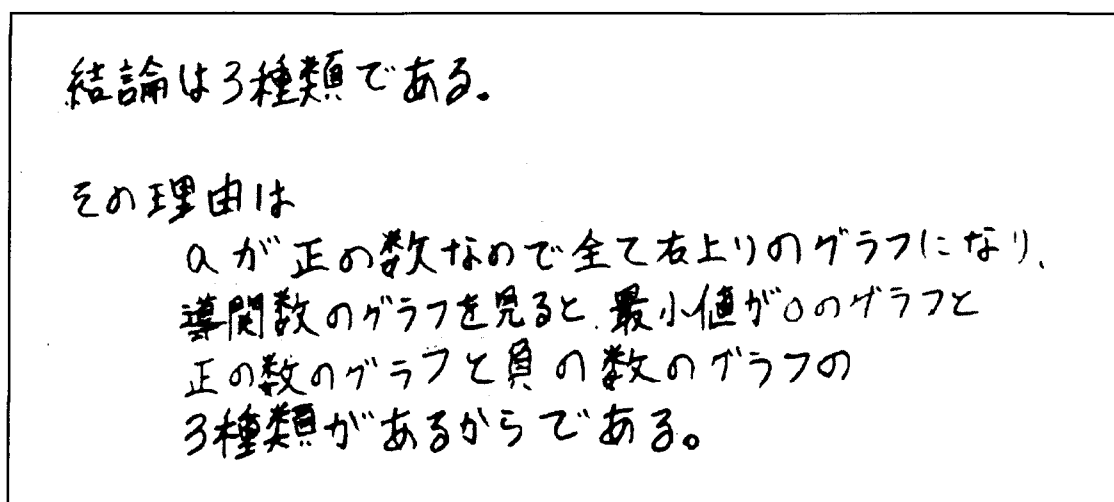 結論は3種類である。
その理由は
aが正の数なので全て右上りのグラフになり、
導関数のグラフを見ると、最小値が0のグラフと
正の数のグラフと負の数のグラフの
3種類があるからである。